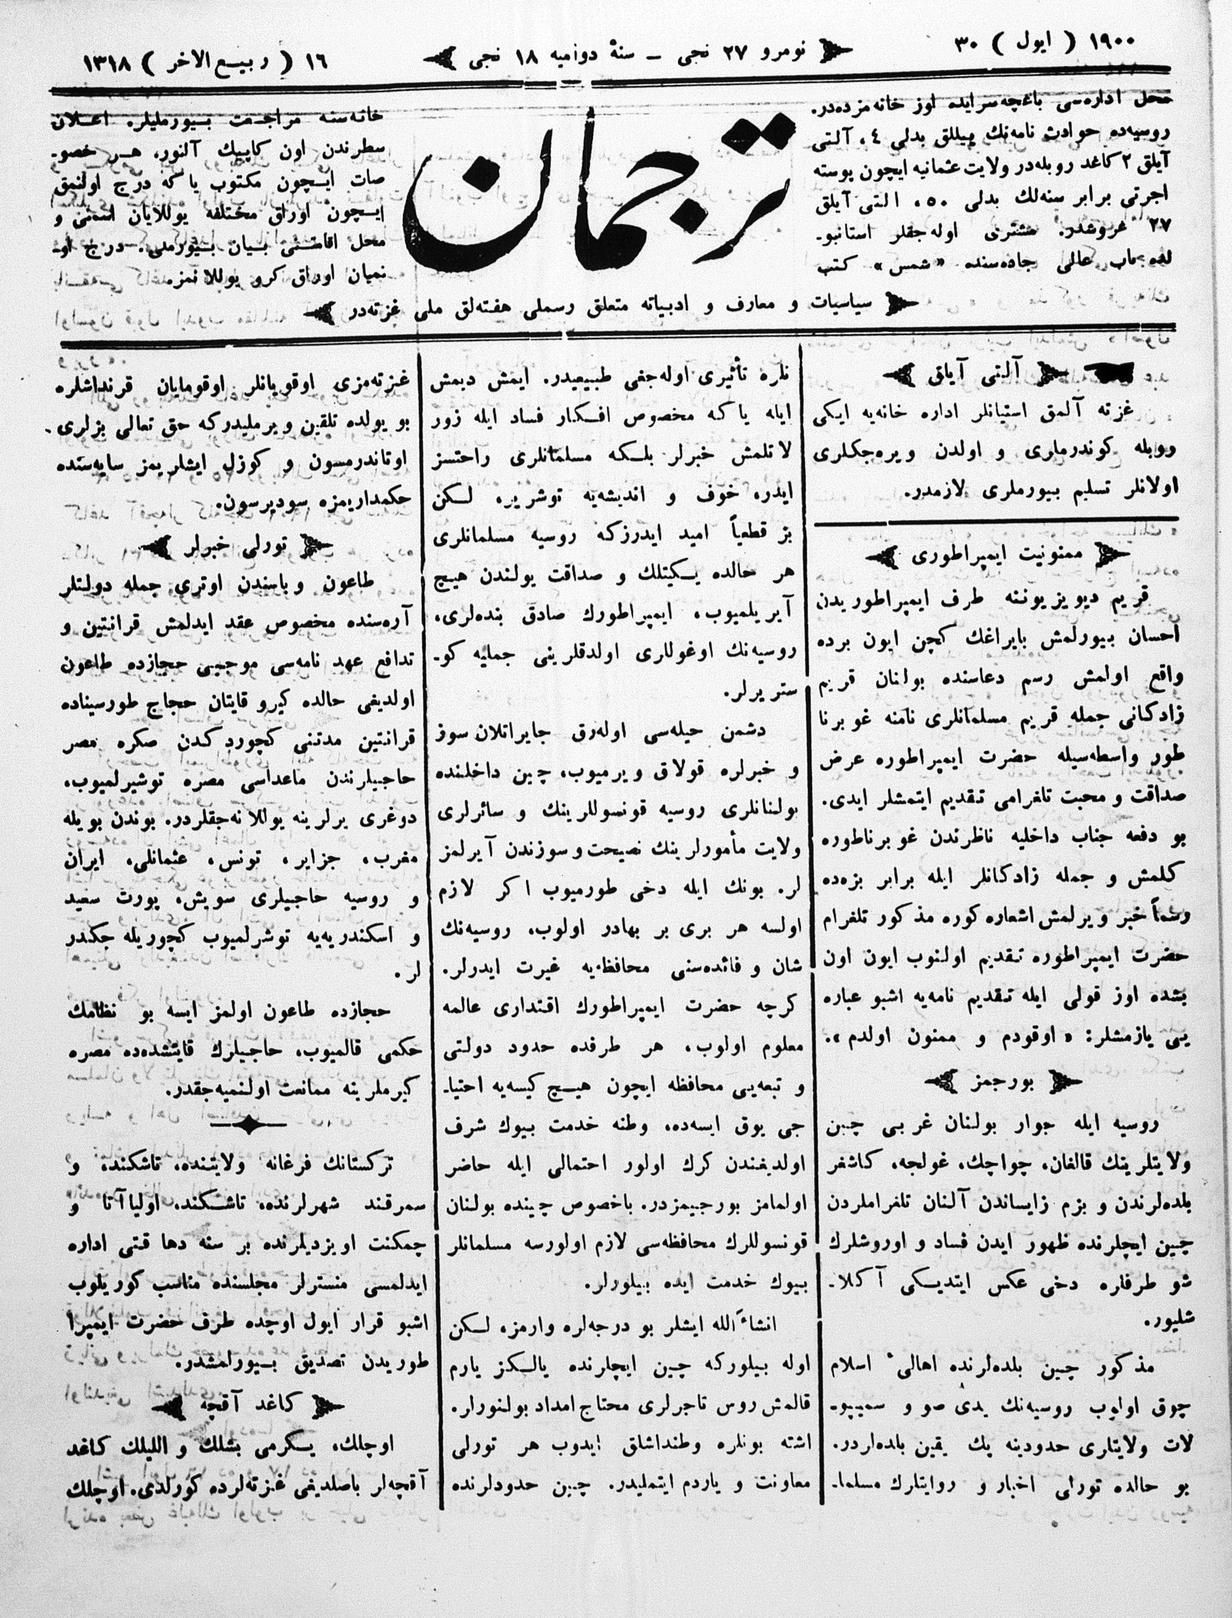 ١٩٠٠ ( ايول ) ٣٠
نومرو ٢٧ نجى ــ سنهٔ دواميه ١٨ نجى
١٦ ( ربيع الاخر ) ١٣١٨
محل اداره‌سى باغچه‌سرايده اوز خانه مزده‌در.
روسيه‌ده حوادث نامه‌نك ييللق بدلى ٤، آلتى
آيلق ٢ كاغد روبله‌در ولايت عثمانيه ايچون پوسته
اجرتى برابر سنه‌لك بدلى ٥٠، التى آيلق
٢٧ غروشدر. مشترى اوله‌جقلر استانبو-
لده باب عالى جاده‌سنده «شمس» كتب
ترجمان
خانه‌سنه مراجعت بيورمليلره اعلان
سطرندن اون كاپيك آلنور، هر خصو-
صات ايچون مكتوب ياكه درج اولنمق
ايچون اوراق مختلفه يوللايان اسمنى و
محل اقامتنى بيان بيورملى. درج او-
نميان اوراق كرو يوللانمز.
سياسيات و معارف و ادبياته متعلق رسملى هفته‌لق ملى غزته‌در
آلتى آيلق
غزته آلمق استيانلر اداره خانه‌يه ايكى
روبله كوندرمارى و اولدن ويره‌جكلرى
اولانلر تسليم بيورملرى لازمدر.
ممنونيت ايمپراطورى
قريم ديويزيوننه طرف ايمپراطوريدن
احسان بيورلمش بايراغك كچن ايون برده
واقع اولمش رسم دعاسنده بولنان قريم
زادكانى جمله قريم مسلمانلرى نامنه غوبرنا
طور واسطه‌سيله حضرت ايمپراطوره عرض
صداقت و محبت تلغرامى تقديم ايتمشلر ايدى.
بو دفعه جناب داخليه ناظرندن غوبرناطوره
كلمش و جمله زادكانلر ايله برابر بزه‌ده
رسماً خبر ويرلمش اشعاره كوره مذكور تلغرام
حضرت ايمپراطوره تقديم اولنوب ايون اون
بشده اوز قولى ايله تقديم نامه‌يه اشبو عباره
يى يازمشلر: «اوقودم و ممنون اولدم».
بورجمز
روسيه ايله جوار بولنان غربى چين
ولايتلرينك قالغان، چواچك، غولجه، كاشغر
بلده‌لرندن و بزم زايساندن آلنان تلغراملردن
چين ايچلرنده ظهور ايدن فساد و اوروشلرك
شو طرفلره دخى عكس ايتديكى آكلا-
شليور.
مذكور چين بلده‌لرنده اهالئ اسلام
چوق اولوب روسيه‌نك يدى صو و سميپو-
لات ولايتلرى حدودينه پك يقين بلده‌لردر.
بو حالده تورلى اخبار و روايتلرك مسلما-
نلره تأثيرى اوله‌جغى طبيعيدر. ايمش ديمش
ايله ياكه مخصوص افكار فساد ايله زور
لاتلمش خبرلر بلكه مسلمانلرى راحتسز
ايدر، خوف و انديشه‌يه توشرير. لكن
بز قطعياً اميد ايدرزكه روسيه مسلمانلرى
هر حالده يكيتلك و صداقت يولندن هيچ
آيريلميوب، ايمپراطورك صادق بنده‌لرى،
روسيه‌نك اوغولارى اولدقلرينى جمليه كو-
ستريرلر.
دشمن حيله‌سى اوله‌رق جايراتلان سوز
و خبرلره قولاق ويرميوب، چين داخلنده
بولنانلرى روسيه قونسوللرينك و سائرلرى
ولايت مأمورلرينك نصيحت و سوزندن آيرلمز
لر. بونك ايله دخى طورميوب اكر لازم
اولسه هر برى بر بهادر اولوب، روسيه‌نك
شان و فائده‌سنى محافظه‌يه غيرت ايدرلر.
كرچه حضرت ايمپراطورك اقتدارى عالمه
معلوم اولوب، هر طرفده حدود دولتى
و تبعه‌يى محافظه ايچون هيچ كيسه‌يه احتيا-
جى يوق ايسه‌ده، وطنه خدمت بيوك شرف
اولديغندن كرك اولور احتمالى ايله حاضر
اولمامز بورجيمزدر. باخصوص چينده بولنان
قونسوللرك محافظه‌سى لازم اولورسه مسلمانلر
بيوك خدمت ايده بيلورلر.
انشاءالله ايشلر بو درجه‌لره وارمز، لكن
اوله بيلوركه چين ايچلرنده يالكز يارم
قالمش روس تاجرلرى محتاج امداد بولنورلر.
اشته بونلره وطنداشلق ايدوب هر تورلى
معاونت و ياردم ايتمليدر. چين حدودلرنده
غزته‌مزى اوقويانلر اوقومايان قرنداشلره
بو يولده تلقين ويرمليدركه حق تعالى بزلرى
اوتاندرمسون و كوزل ايشلريمز سايه‌سنده
حكمداريمزه سوديرسون.
تورلى خبرلر
طاعون و باسندن اوترى جمله دولتلر
آره‌سنده مخصوص عقد ايدلمش قرانتين و
تدافع عهد نامه‌سى موجبى حجازده طاعون
اولديغى حالده كيرو قايتان حجاج طورسيناده
قرانتين مدتنى كچوردكدن صكره مصر
حاجيلرندن ماعداسى مصره توشيرلميوب،
دوغرى يرلرينه يوللانه‌جقلردر. بوندن بويله
مغرب، جزاير، تونس، عثمانلى، ايران
و روسيه حاجيلرى سويش، پورت سعيد
و اسكندريه‌يه توشرلميوب كچوريله جكدر
لر.
حجازده طاعون اولمز ايسه بو نظامك
حكمى قالميوب، حاجيلرك قايتشده‌ده مصره
كيرملرينه ممانعت اولنميه‌جقدر.
تركستانك فرغانه ولايتنده، تاشكند، و
سمرقند شهرلرنده، تاشكند، اوليا آتا و
چمكنت اويزديلرنده بر سنه دها قتى اداره
ايدلمسى منسترلر مجلسنده مناسب كوريلوب
اشبو قرار ايول اوچده طرف حضرت ايمپرا
طوريدن تصديق بيورلمشدر.
كاغد آقچه
اوچلك، يكرمى بشلك و الليلك كاغد
آقچه‌لر باصلديغى غزته‌لرده كورلدى. اوچلك